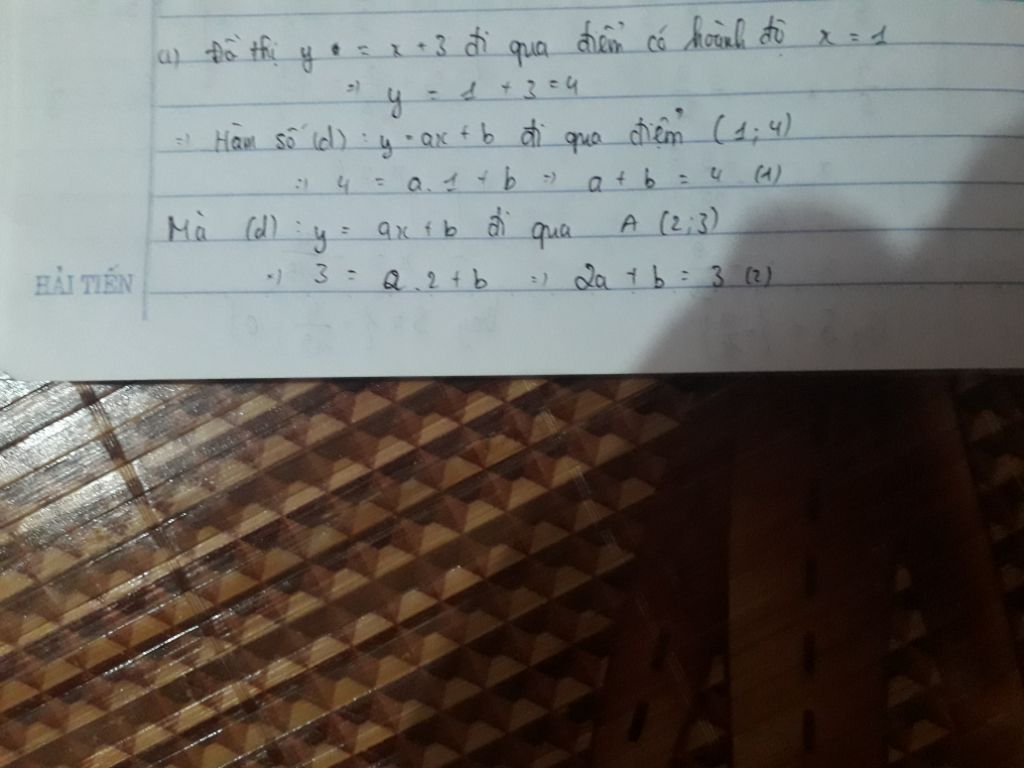 a) Đồ thị y = x + 3 đi qua điểm có hoành độ x = 1
=> y = 1 + 3 = 4
=> Hàm số (d) : y = ax + b đi qua điểm (1; 4)
=> 4 = a.1 + b => a + b = 4 (1)
Mà (d) : y = ax + b đi qua A (2; 3)
=> 3 = a.2 + b => 2a + b = 3 (2)
HẢI TIẾN